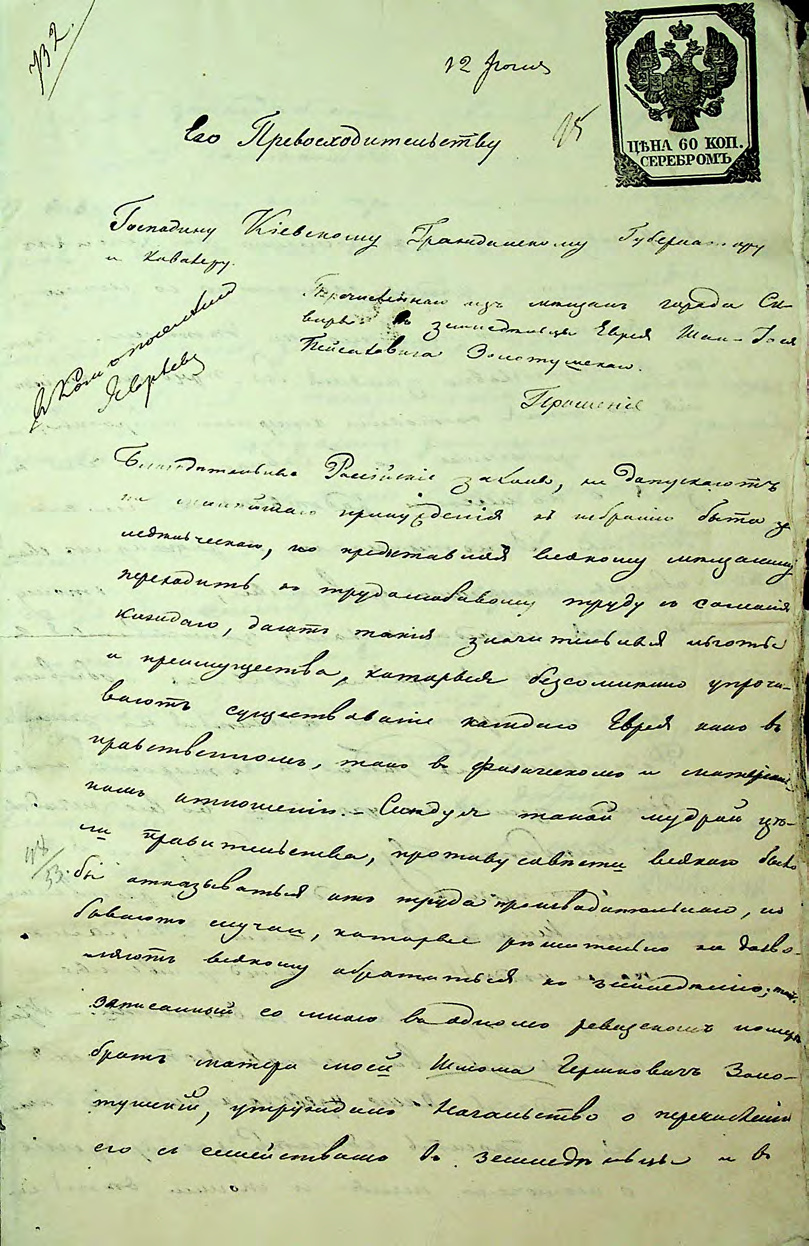 732.
12 Июня
Его Превосходительству
95
ЦѢНА 60 КОП.
СЕРЕБРОМЪ
Господину Кіевскому Гражданскому Губернатору
и Кавалеру.
Перечисленнаго изъ мещанъ города Ск-
вира въ земледельцы Еврея
Золотушскаго.
Прошеніе
Россійскіе законы, не допускаютъ
ни малейшаго принужденія къ избранію быта зем
ледельческаго, но предоставляя всякому мещанину
переходить къ трудолюбивому труду съ согласія
каждаго, даютъ такія значительныя льготы
и преимущества, которыя безсомненно упрочи-
ваютъ существованіе каждаго Еврея какъ въ
нравственномъ, такъ въ физическомъ и матеріаль
номъ отношеніи. – Следуя такой мудрой це-
ли правительства, противу совести всякаго было
бы отказываться отъ труда производительнаго, но
бываютъ случаи, которые решительно не дозво-
ляютъ всякому обратиться къ земледелію,
записанный со мною въ одномъ ревизскомъ номере
братъ матери моей Шлома Гершковичъ Золо-
тушскій, утруждалъ Начальство о перечисленіи
его съ семействомъ въ земледельцы и въ